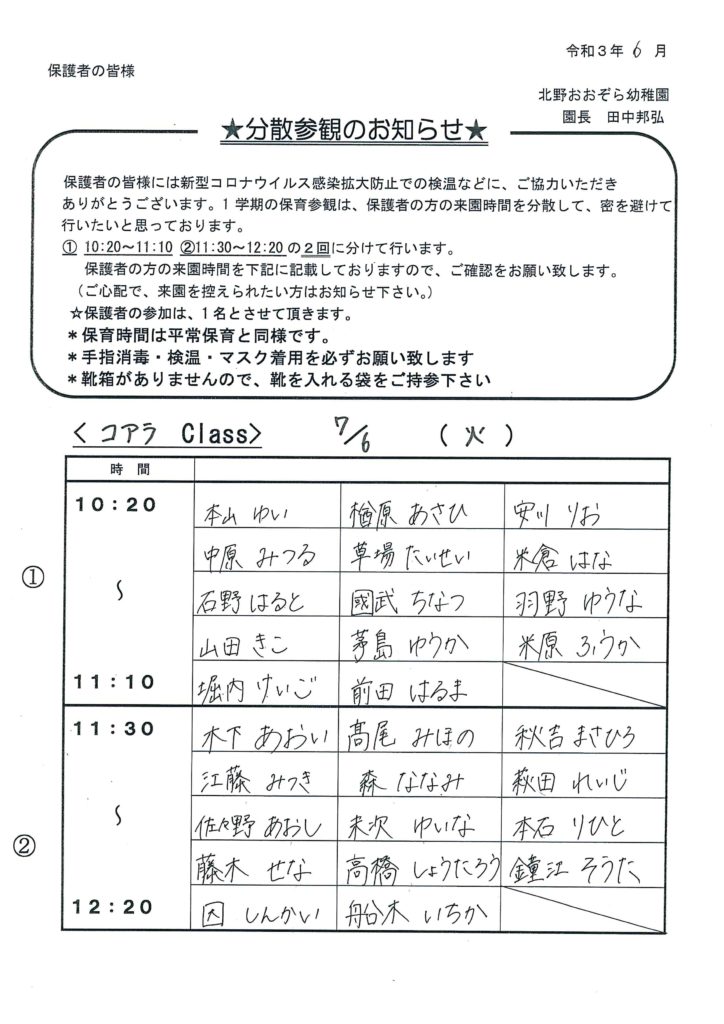 令和3年 6 月
保護者の皆様
北野おおぞら幼稚園
園長 田中邦弘
★分散参観のお知らせ★
保護者の皆様には新型コロナウイルス感染拡大防止での検温などに、ご協力いただき
ありがとうございます。1学期の保育参観は、保護者の方の来園時間を分散して、密を避けて
行いたいと思っております。
① 10:20〜11:10 ②11:30〜12:20 の2回に分けて行います。
保護者の方の来園時間を下記に記載しておりますので、ご確認をお願い致します。
（ご心配で、来園を控えられたい方はお知らせ下さい。）
☆保護者の参加は、1名とさせて頂きます。
＊保育時間は平常保育と同様です。
＊手指消毒・検温・マスク着用を必ずお願い致します
＊靴箱がありませんので、靴を入れる袋をご持参下さい
< コアラ Class> 7/6 （ 火 ）
時 間
① 10：20 〜 11：10
本山 ゆい 楢原 あさひ 安川 りお
中原 みつる 草場 たいせい 米倉 はな
石野 はると 國武 ちなつ 羽野 ゆうな
山田 きこ 茅島 ゆうか 米原 ふうか
堀内 けいご 前田 はるま
② 11：30 〜 12：20
木下 あおい 髙尾 みほの 秋吉 まさひろ
江藤 みつき 森 ななみ 萩田 れいじ
佐々野 あおし 末次 ゆいな 本石 りひと
藤木 せな 高橋 しょうたろう 鐘江 そうた
因 しんかい 船谷木 いちか